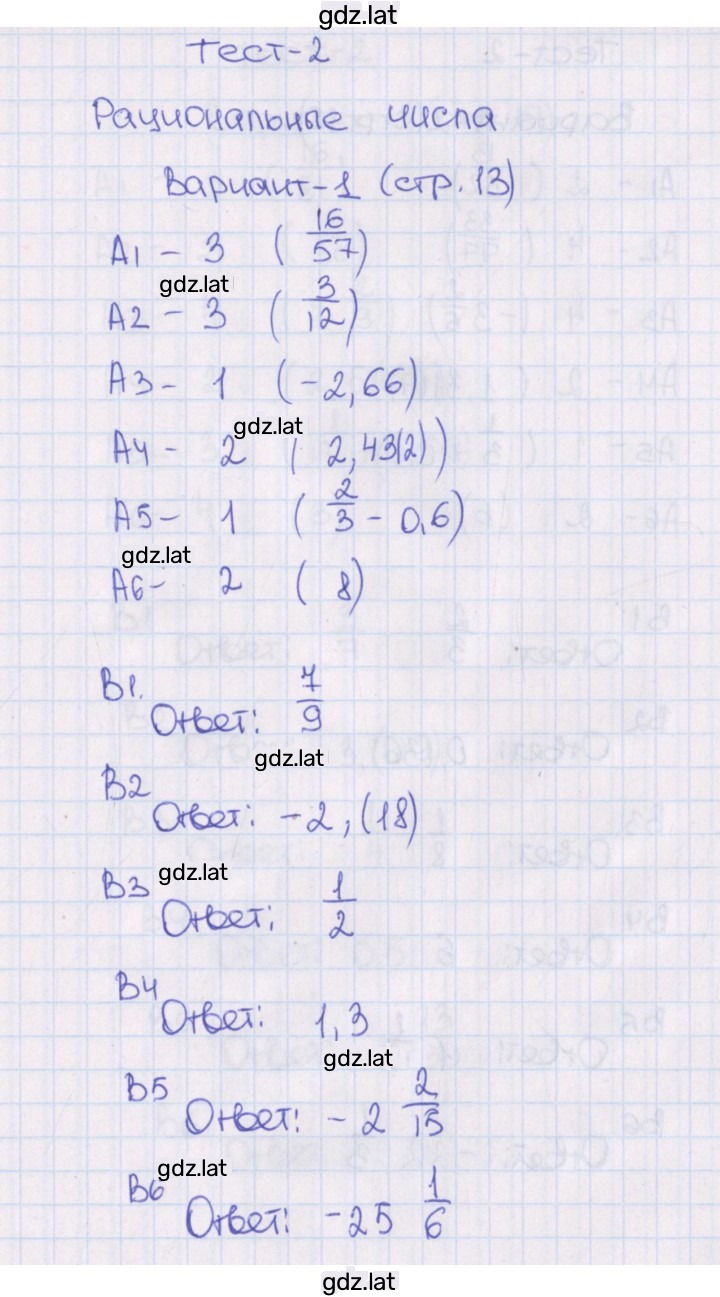 gdz.lat
Тест-2
Рациональные числа
Вариант-1 (стр.13)
A1 - 3 (16/57)
gdz.lat
A2 - 3 (3/12)
A3 - 1 (-2,66)
gdz.lat
A4 - 2 ( 2,43(2))
A5 - 1 (2/3 - 0,6)
gdz.lat
A6 - 2 ( 8)
B1.
Ответ: 7/9
gdz.lat
B2
Ответ: -2,(18)
gdz.lat
B3
Ответ: 1/2
B4
Ответ: 1,3
gdz.lat
B5
Ответ: -2 2/15
gdz.lat
B6
Ответ: -25 1/6
gdz.lat